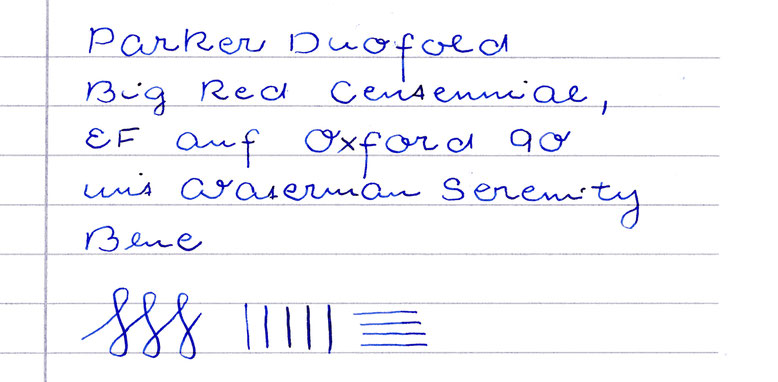 Parker Duofold
Big Red Centennial,
EF auf Oxford 90
mit Waterman Serenity
Blue